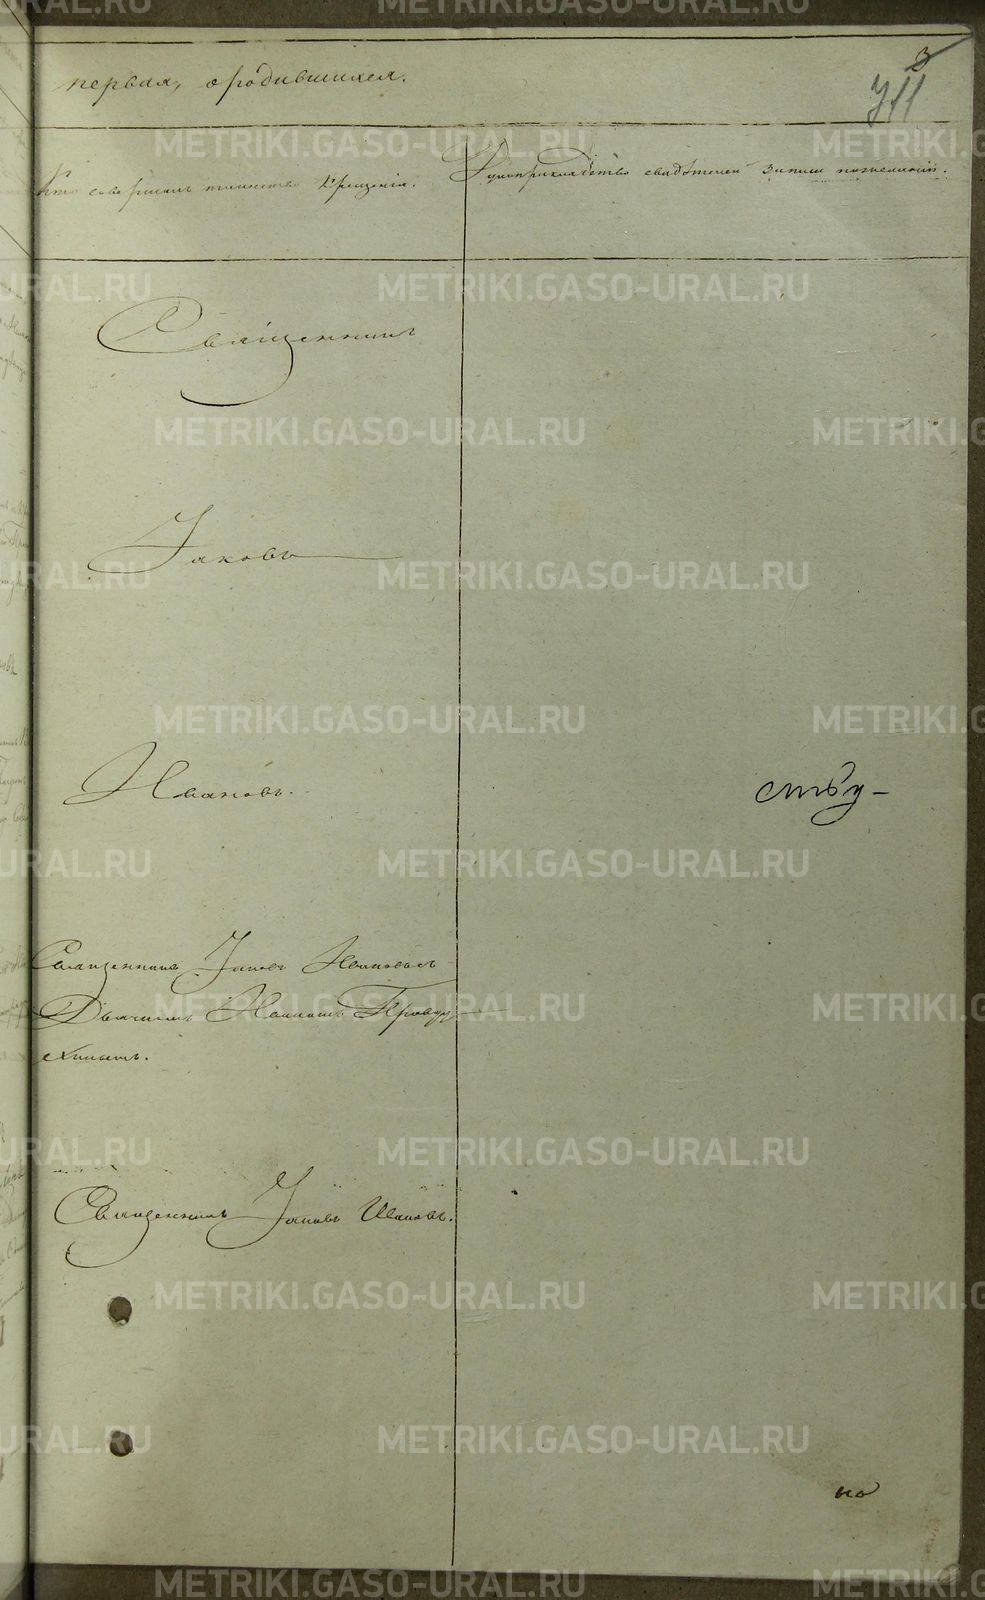 первая, о родившихся.
3
711
Кто совершалъ таинство крещенія.
Рукоприкладство свидѣтелей записи по желанію.
Священникъ
Іаковъ
Ивановъ.
Священникъ Іаковъ Ивановъ
Дьячкомъ Иваномъ
Священникъ Іаковъ Ивановъ.
но
METRIKI.GASO-URAL.RU